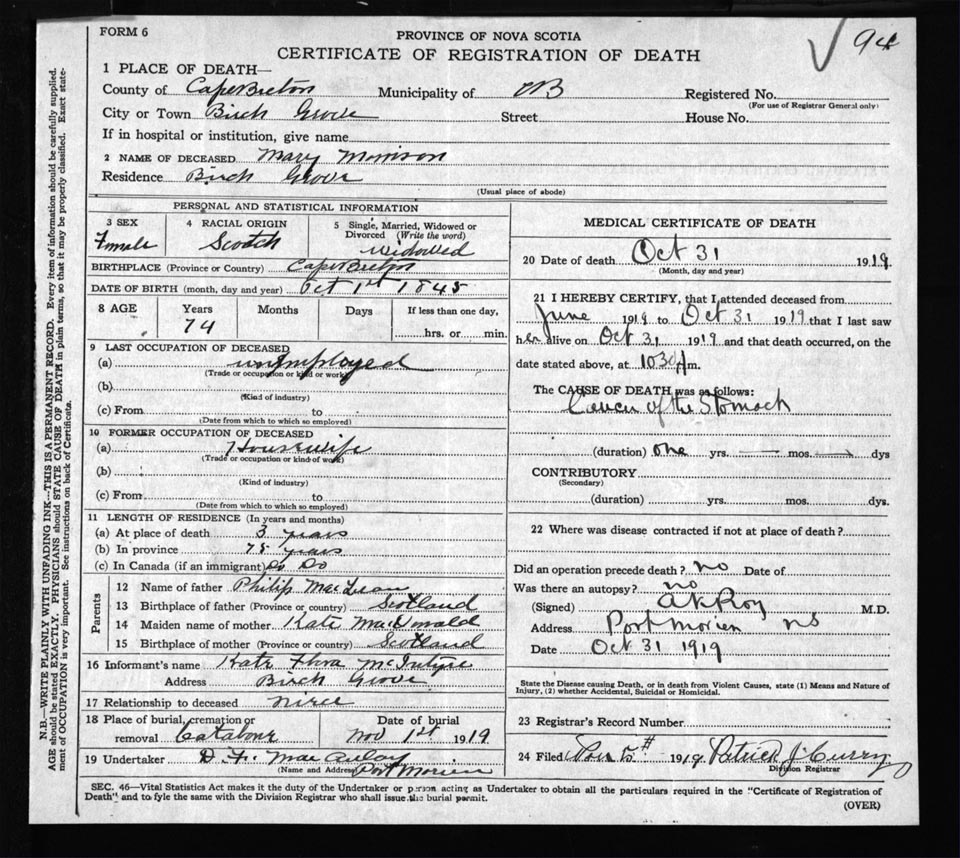 FORM 6
PROVINCE OF NOVA SCOTIA
94
CERTIFICATE OF REGISTRATION OF DEATH
1 PLACE OF DEATH—
County of Cape Breton Municipality of CB Registered No.
(For use of Registrar General only)
City or Town Birch Grove Street House No.
If in hospital or institution, give name
2 NAME OF DECEASED Mary Morrison
Residence Birch Grove
(Usual place of abode)
PERSONAL AND STATISTICAL INFORMATION
3 SEX 4 RACIAL ORIGIN 5 Single, Married, Widowed or Divorced (Write the word)
Female Scotch Widowed
BIRTHPLACE (Province or Country) Cape Breton
DATE OF BIRTH (month, day and year) Oct 1st 1845
8 AGE Years Months Days If less than one day,
74 hrs. or min.
9 LAST OCCUPATION OF DECEASED
(a) unemployed
(Trade or occupation or kind of work)
(b)
(Kind of industry)
(c) From to
(Date from which to which so employed)
10 FORMER OCCUPATION OF DECEASED
(a) Housewife
(Trade or occupation or kind of work)
(b)
(Kind of industry)
(c) From to
(Date from which to which so employed)
11 LENGTH OF RESIDENCE (In years and months)
(a) At place of death 3 years
(b) In province 75 years
(c) In Canada (if an immigrant) Do Do
Parents
12 Name of father Philip MacLean
13 Birthplace of father (Province or country) Scotland
14 Maiden name of mother Kate MacDonald
15 Birthplace of mother (Province or country) Scotland
16 Informant's name Kate Flora McIntyre
Address Birch Grove
17 Relationship to deceased niece
18 Place of burial, cremation or removal Catalone Date of burial Nov 1st 1919
19 Undertaker D. F. MacAulay
(Name and Address) Port Morien
MEDICAL CERTIFICATE OF DEATH
20 Date of death Oct 31 1919
(Month, day and year)
21 I HEREBY CERTIFY, that I attended deceased from
June 1919 to Oct 31 1919 that I last saw
her alive on Oct 31 1919 and that death occurred, on the
date stated above, at 1030 m.
The CAUSE OF DEATH was as follows:
Cancer of the Stomach
(duration) one yrs. — mos. — dys
CONTRIBUTORY
(Secondary)
(duration) yrs. mos. dys.
22 Where was disease contracted if not at place of death?
Did an operation precede death? no Date of
Was there an autopsy? no
(Signed) A K Roy M.D.
Address Port Morien NS
Date Oct 31 1919
State the Disease causing Death, or in death from Violent Causes, state (1) Means and Nature of
Injury, (2) whether Accidental, Suicidal or Homicidal.
23 Registrar's Record Number
24 Filed 1919 Patrick J. Curry
Division Registrar
SEC. 46—Vital Statistics Act makes it the duty of the Undertaker or person acting as Undertaker to obtain all the particulars required in the "Certificate of Registration of
Death" and to fyle the same with the Division Registrar who shall issue the burial permit.
(OVER)
N.B.—WRITE PLAINLY WITH UNFADING INK—THIS IS A PERMANENT RECORD. Every item of information should be carefully supplied.
AGE should be stated EXACTLY. PHYSICIANS should STATE CAUSE OF DEATH in plain terms, so that it may be properly classified. Exact state-
ment of OCCUPATION is very important. See instructions on back of Certificate.